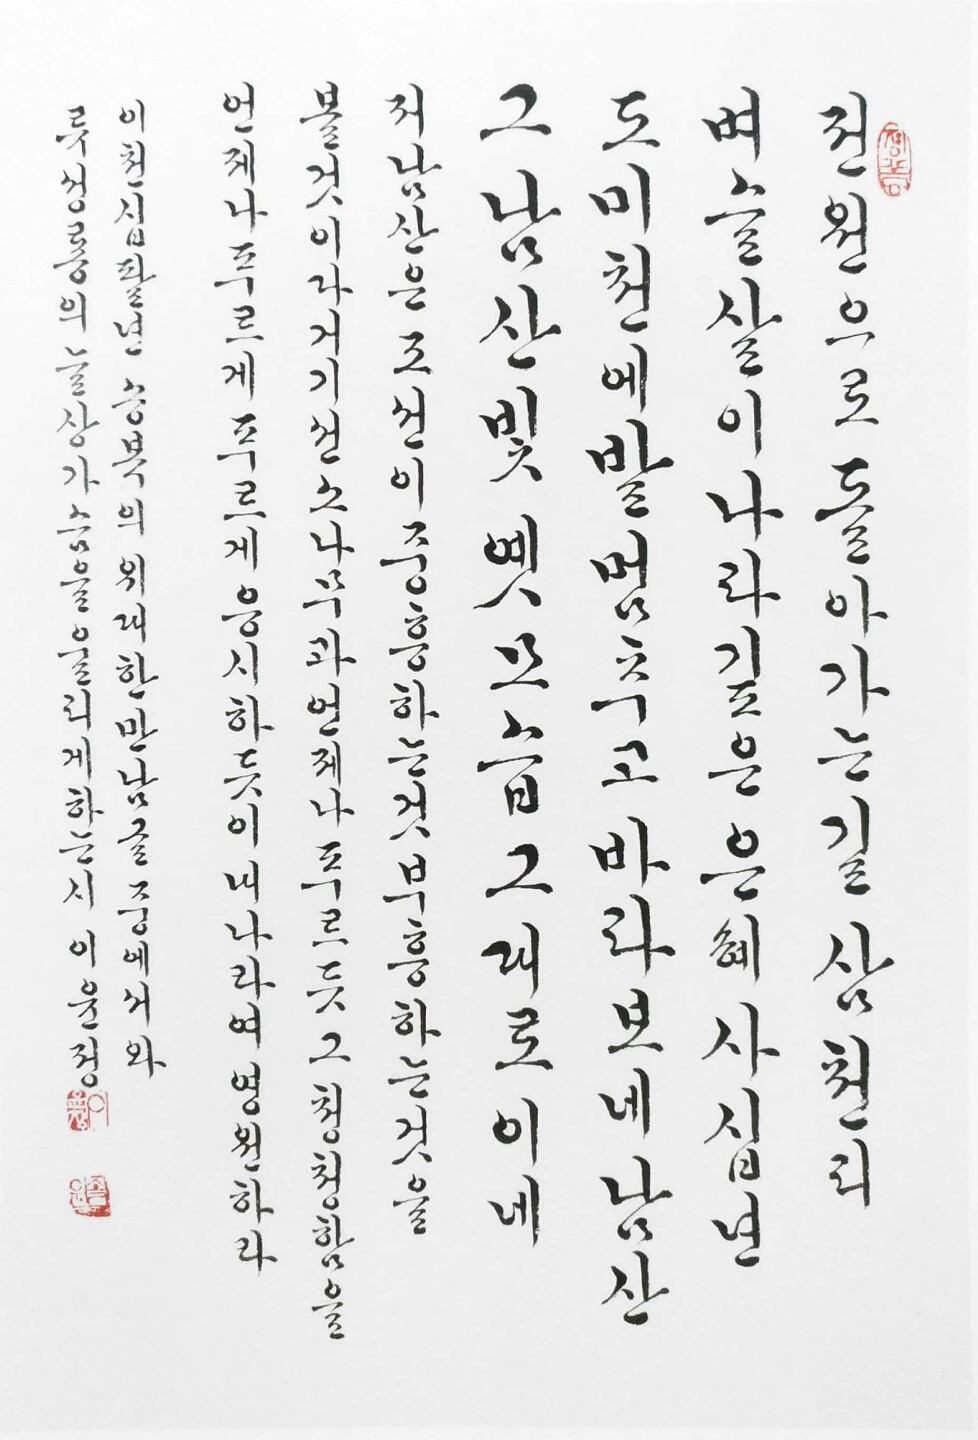 전원으로 돌아가는 길 삼천리
벼슬살이 나라 깊은 은혜 사십년
도미천에 발 멈추고 바라보네 남산
그 남산 빛 옛 모습 그대로이네
저 남산은 조선이 중흥하는 것 부흥하는 것을
볼 것이라 거기 선 소나무과 언제나 푸르듯 그 청청함을
언제나 푸르게 푸르게 응시하듯이 내 나라여 영원하라
이천십팔년 승북의 위대한 만남 글 중에서와
룻 성룡의 늘상 가슴을 울리게 하는 시 이윤정